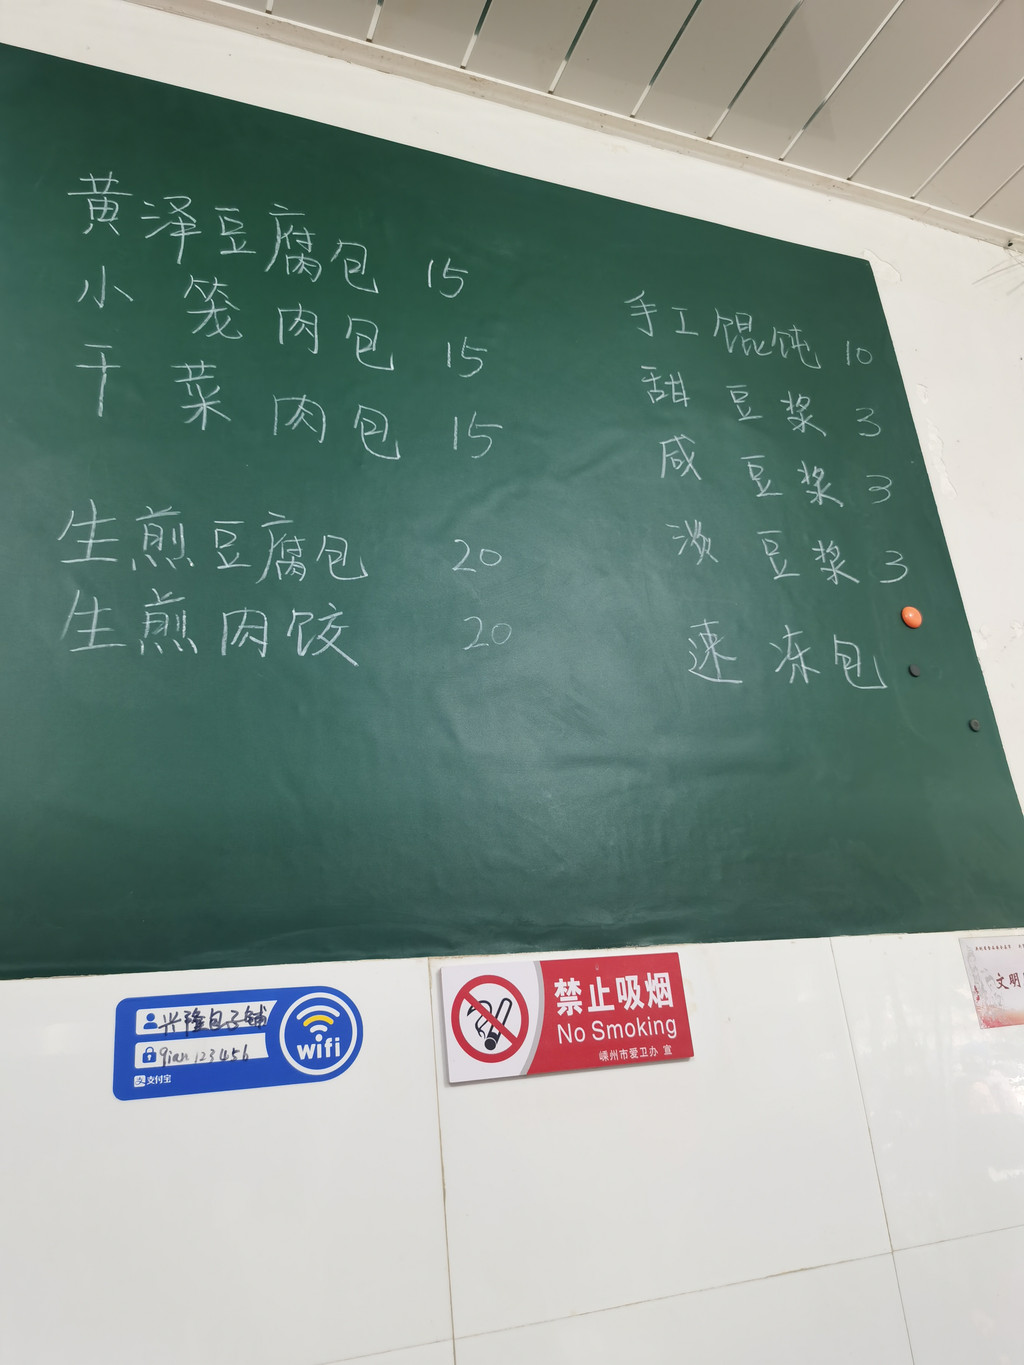 黄泽豆腐包 15
小笼肉包 15
干菜肉包 15
生煎豆腐包 20
生煎肉饺 20
手工馄饨 10
甜豆浆 3
咸豆浆 3
淡豆浆 3
速冻包
兴隆包子铺
qian123456
支付宝
wifi
禁止吸烟
No Smoking
嵊州市爱卫办 宣
文明